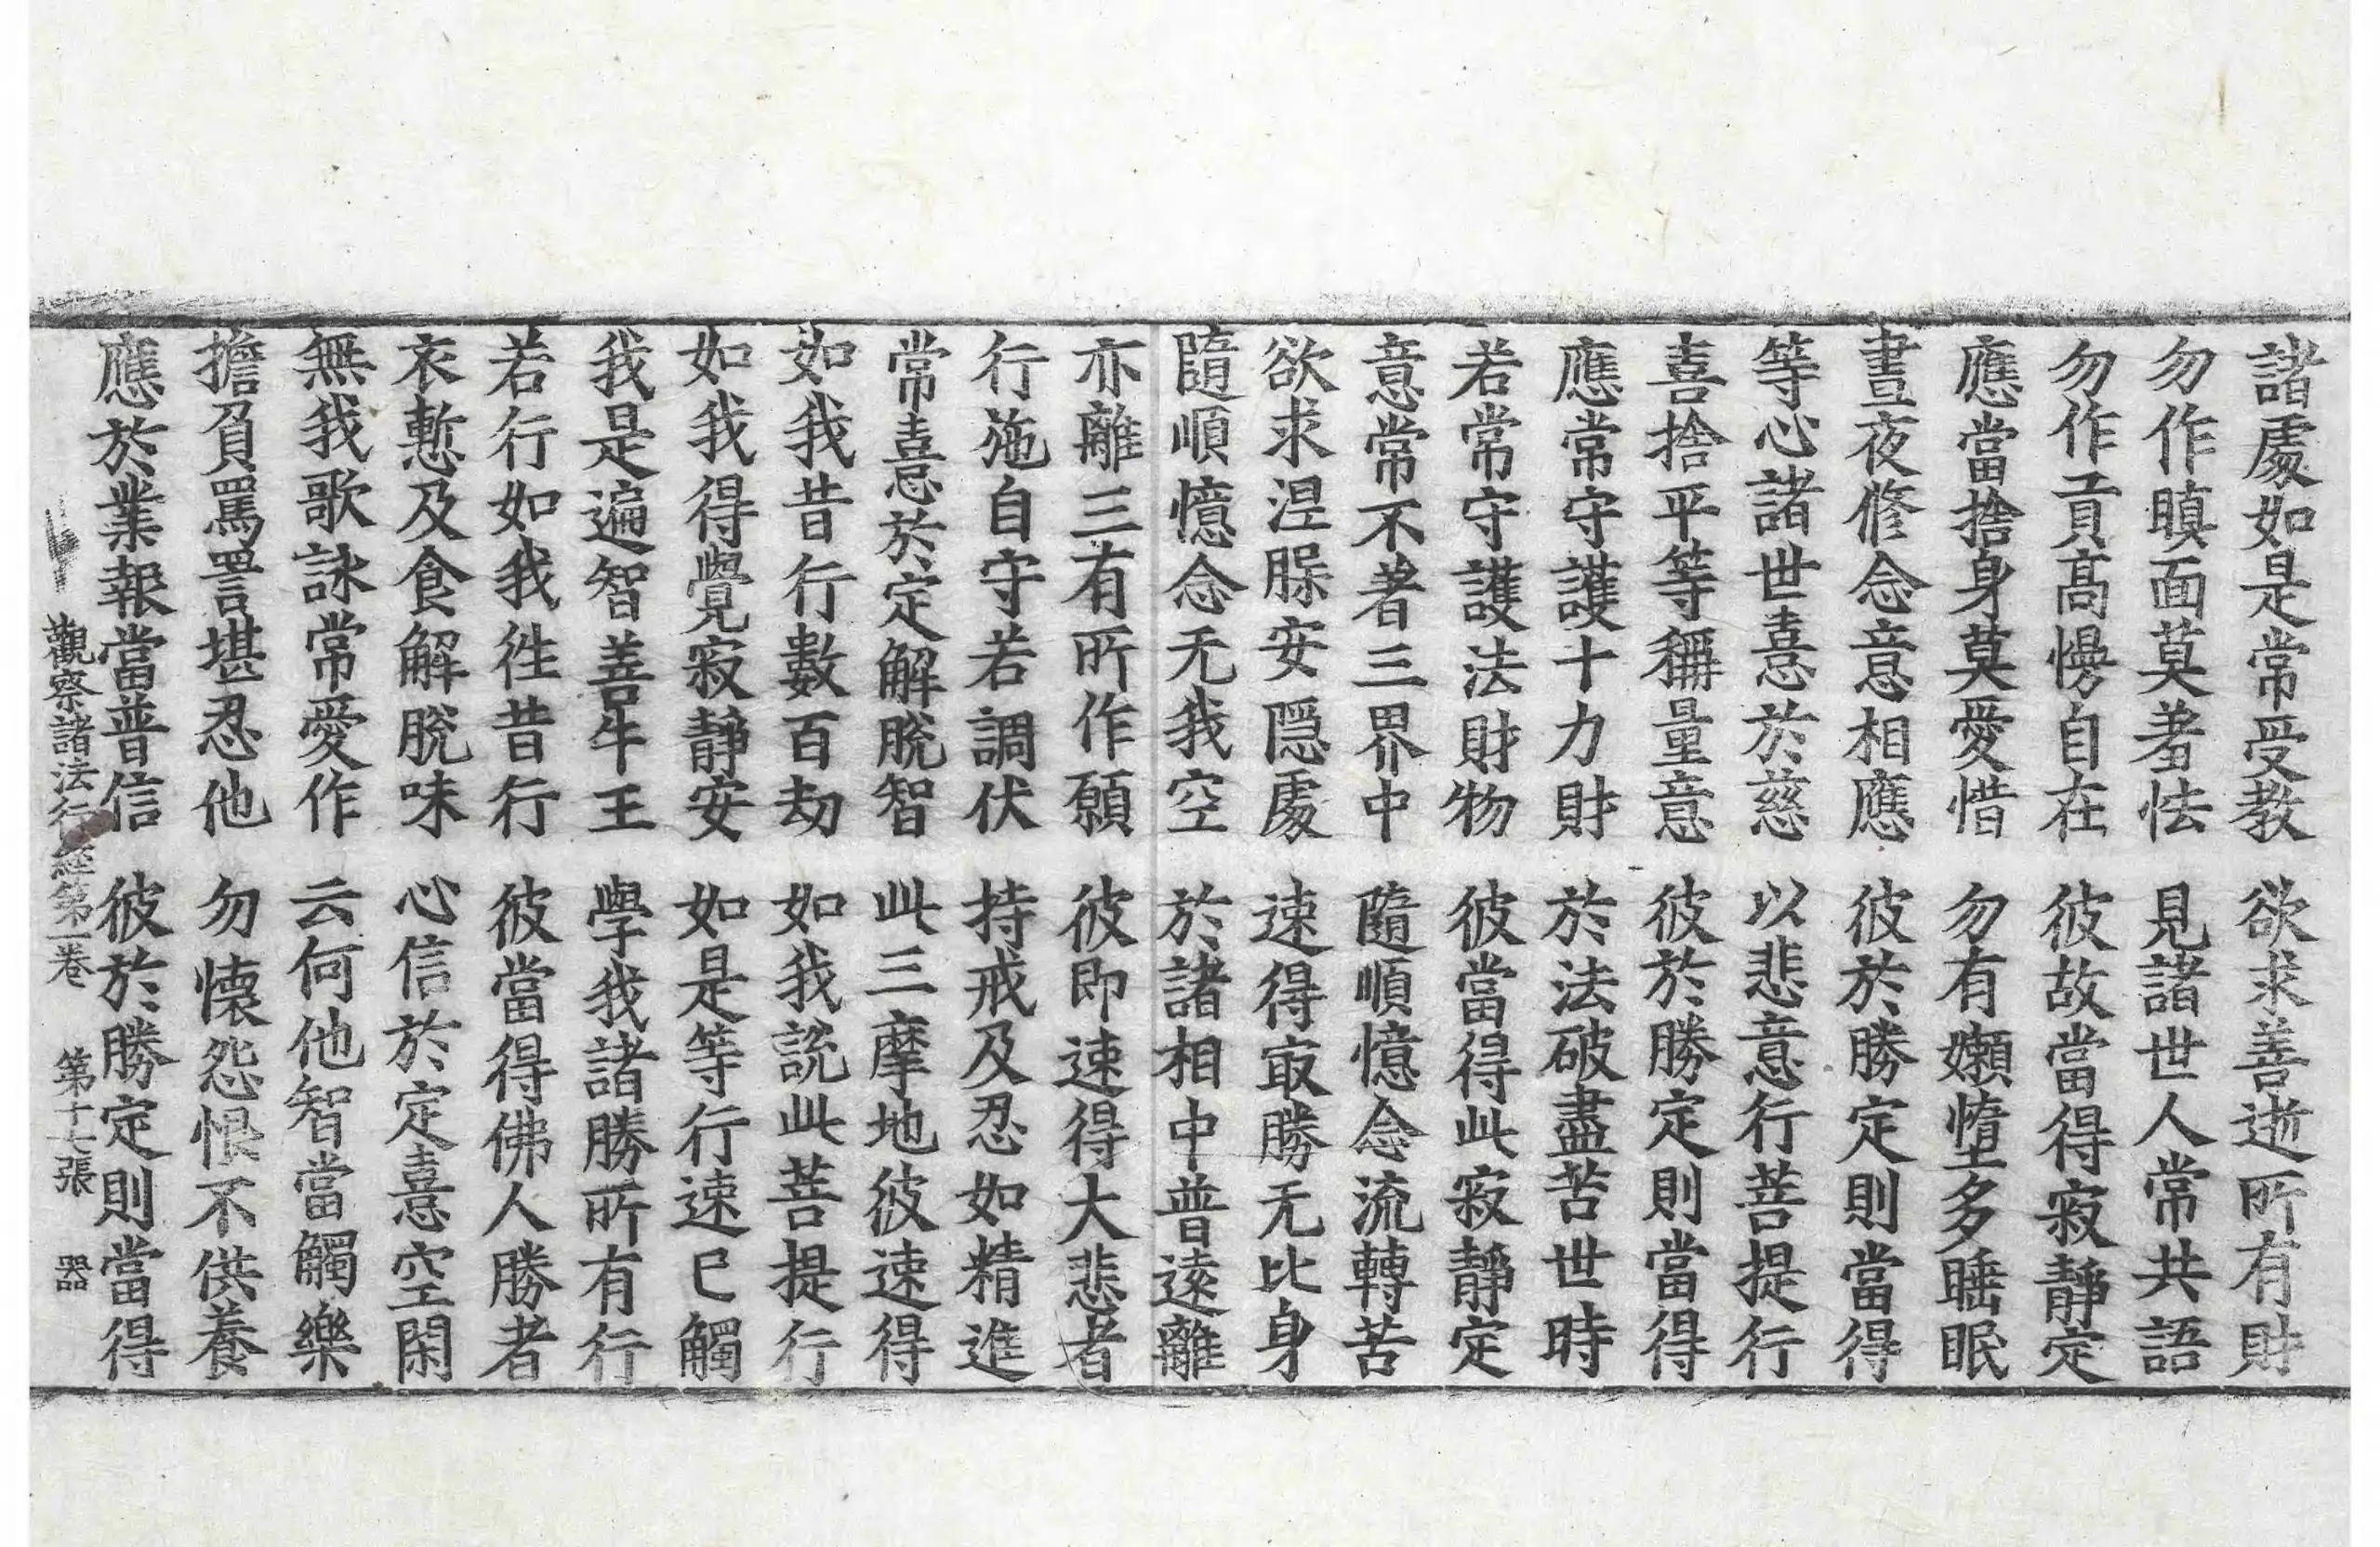 諸䖏如是常受教　欲求善逝所有財
勿作瞋面莫著怯　見諸世人常共語
勿作貢高慢自在　彼故當得寂靜定
應當捨身莫愛惜　勿有嬾惰多睡眠
晝夜修念意相應　彼於勝定則當得
等心諸世憙於慈　以悲意行菩提行
喜捨平等稱量意　彼於勝定則當得
應常守護十力財　於法破盡苦世時
若常守護法財物　彼當得此寂靜定
意常不著三界中　隨順憶念流轉苦
欲求涅槃安隱䖏　速得㝡勝无比身
隨順憶念无我空　於諸相中普遠離
亦離三有所作願　彼即速得大悲者
行施自守若調伏　持戒及忍如精進
常憙於定解脫智　此三摩地彼速得
如我昔行數百劫　如我說此菩提行
如我得覺寂靜安　如是等行速巳觸
我是遍智善牛王　學我諸勝所有行
若行如我往昔行　彼當得佛人勝者
衣慙及食解脫味　心信於定憙空閑
無我歌詠常愛作　云何他智當觸樂
擔負罵詈堪忍他　勿懷怨恨不供養
應於業報當普信　彼於勝定則當得
觀察諸法行經第一卷　第十七張　器